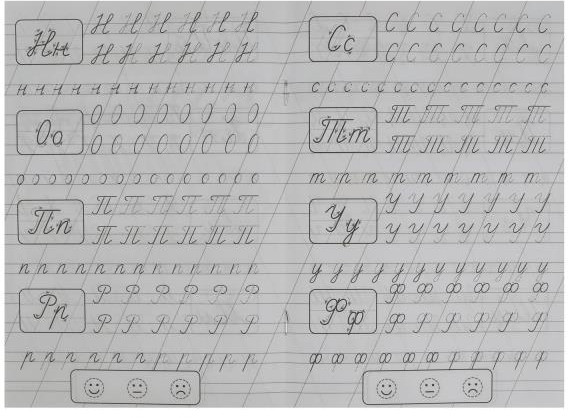 Нн
Н Н Н Н Н Н
Н Н Н Н Н Н
н н н н н н н н н н н н н н
Оо
О О О О О О О О
О О О О О О О О
о о о о о о о о о о о о о о о
Пп
П П П П П П
П П П П П П
п п п п п п п п п п п п
Рр
Р Р Р Р Р Р
Р Р Р Р Р Р
р р р р р р р р р р р
Сс
С С С С С С С С
С С С С С С С С
с с с с с с с с с с с с с с с
Тт
Т Т Т Т Т
Т Т Т Т Т
т т т т т т т т т
Уу
У У У У У У У
У У У У У У У
у у у у у у у у у у у у
Фф
Ф Ф Ф Ф Ф Ф
Ф Ф Ф Ф Ф Ф
ф ф ф ф ф ф ф ф ф ф ф